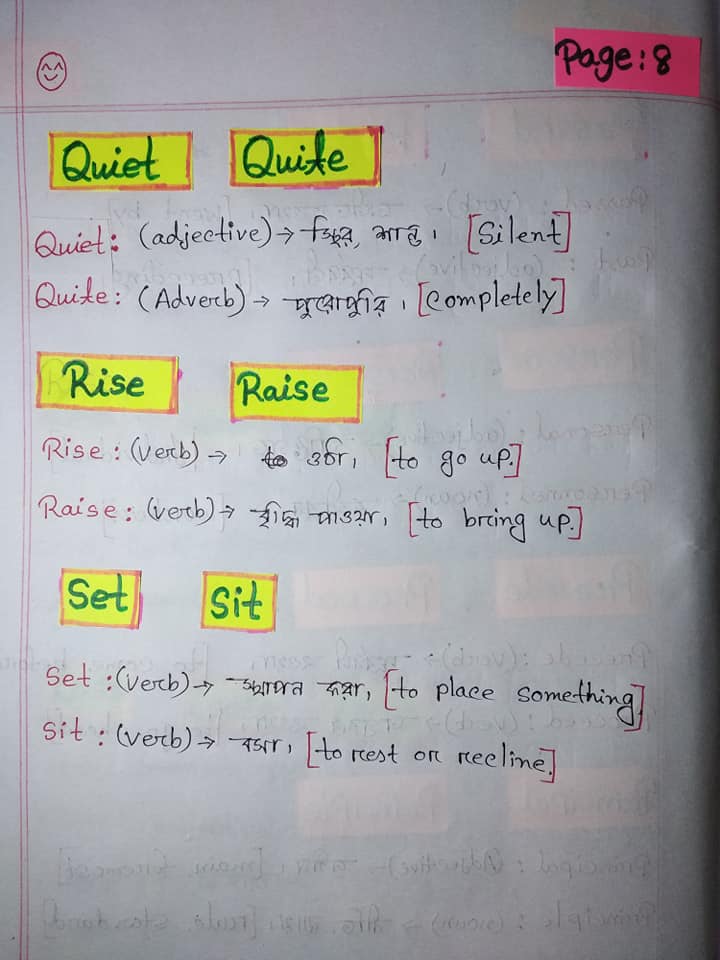 Page: 8
Quiet Quite
Quiet: (adjective) → স্থির, শান্ত। [Silent]
Quite: (Adverb) → পুরোপুরি। [Completely]
Rise Raise
Rise: (verb) → ওঠা, [to go up.]
Raise: (verb) → বৃদ্ধি পাওয়া, [to bring up.]
Set Sit
Set: (verb) → স্থাপন করা, [to place something.]
Sit: (verb) → বসা। [to rest or recline.]